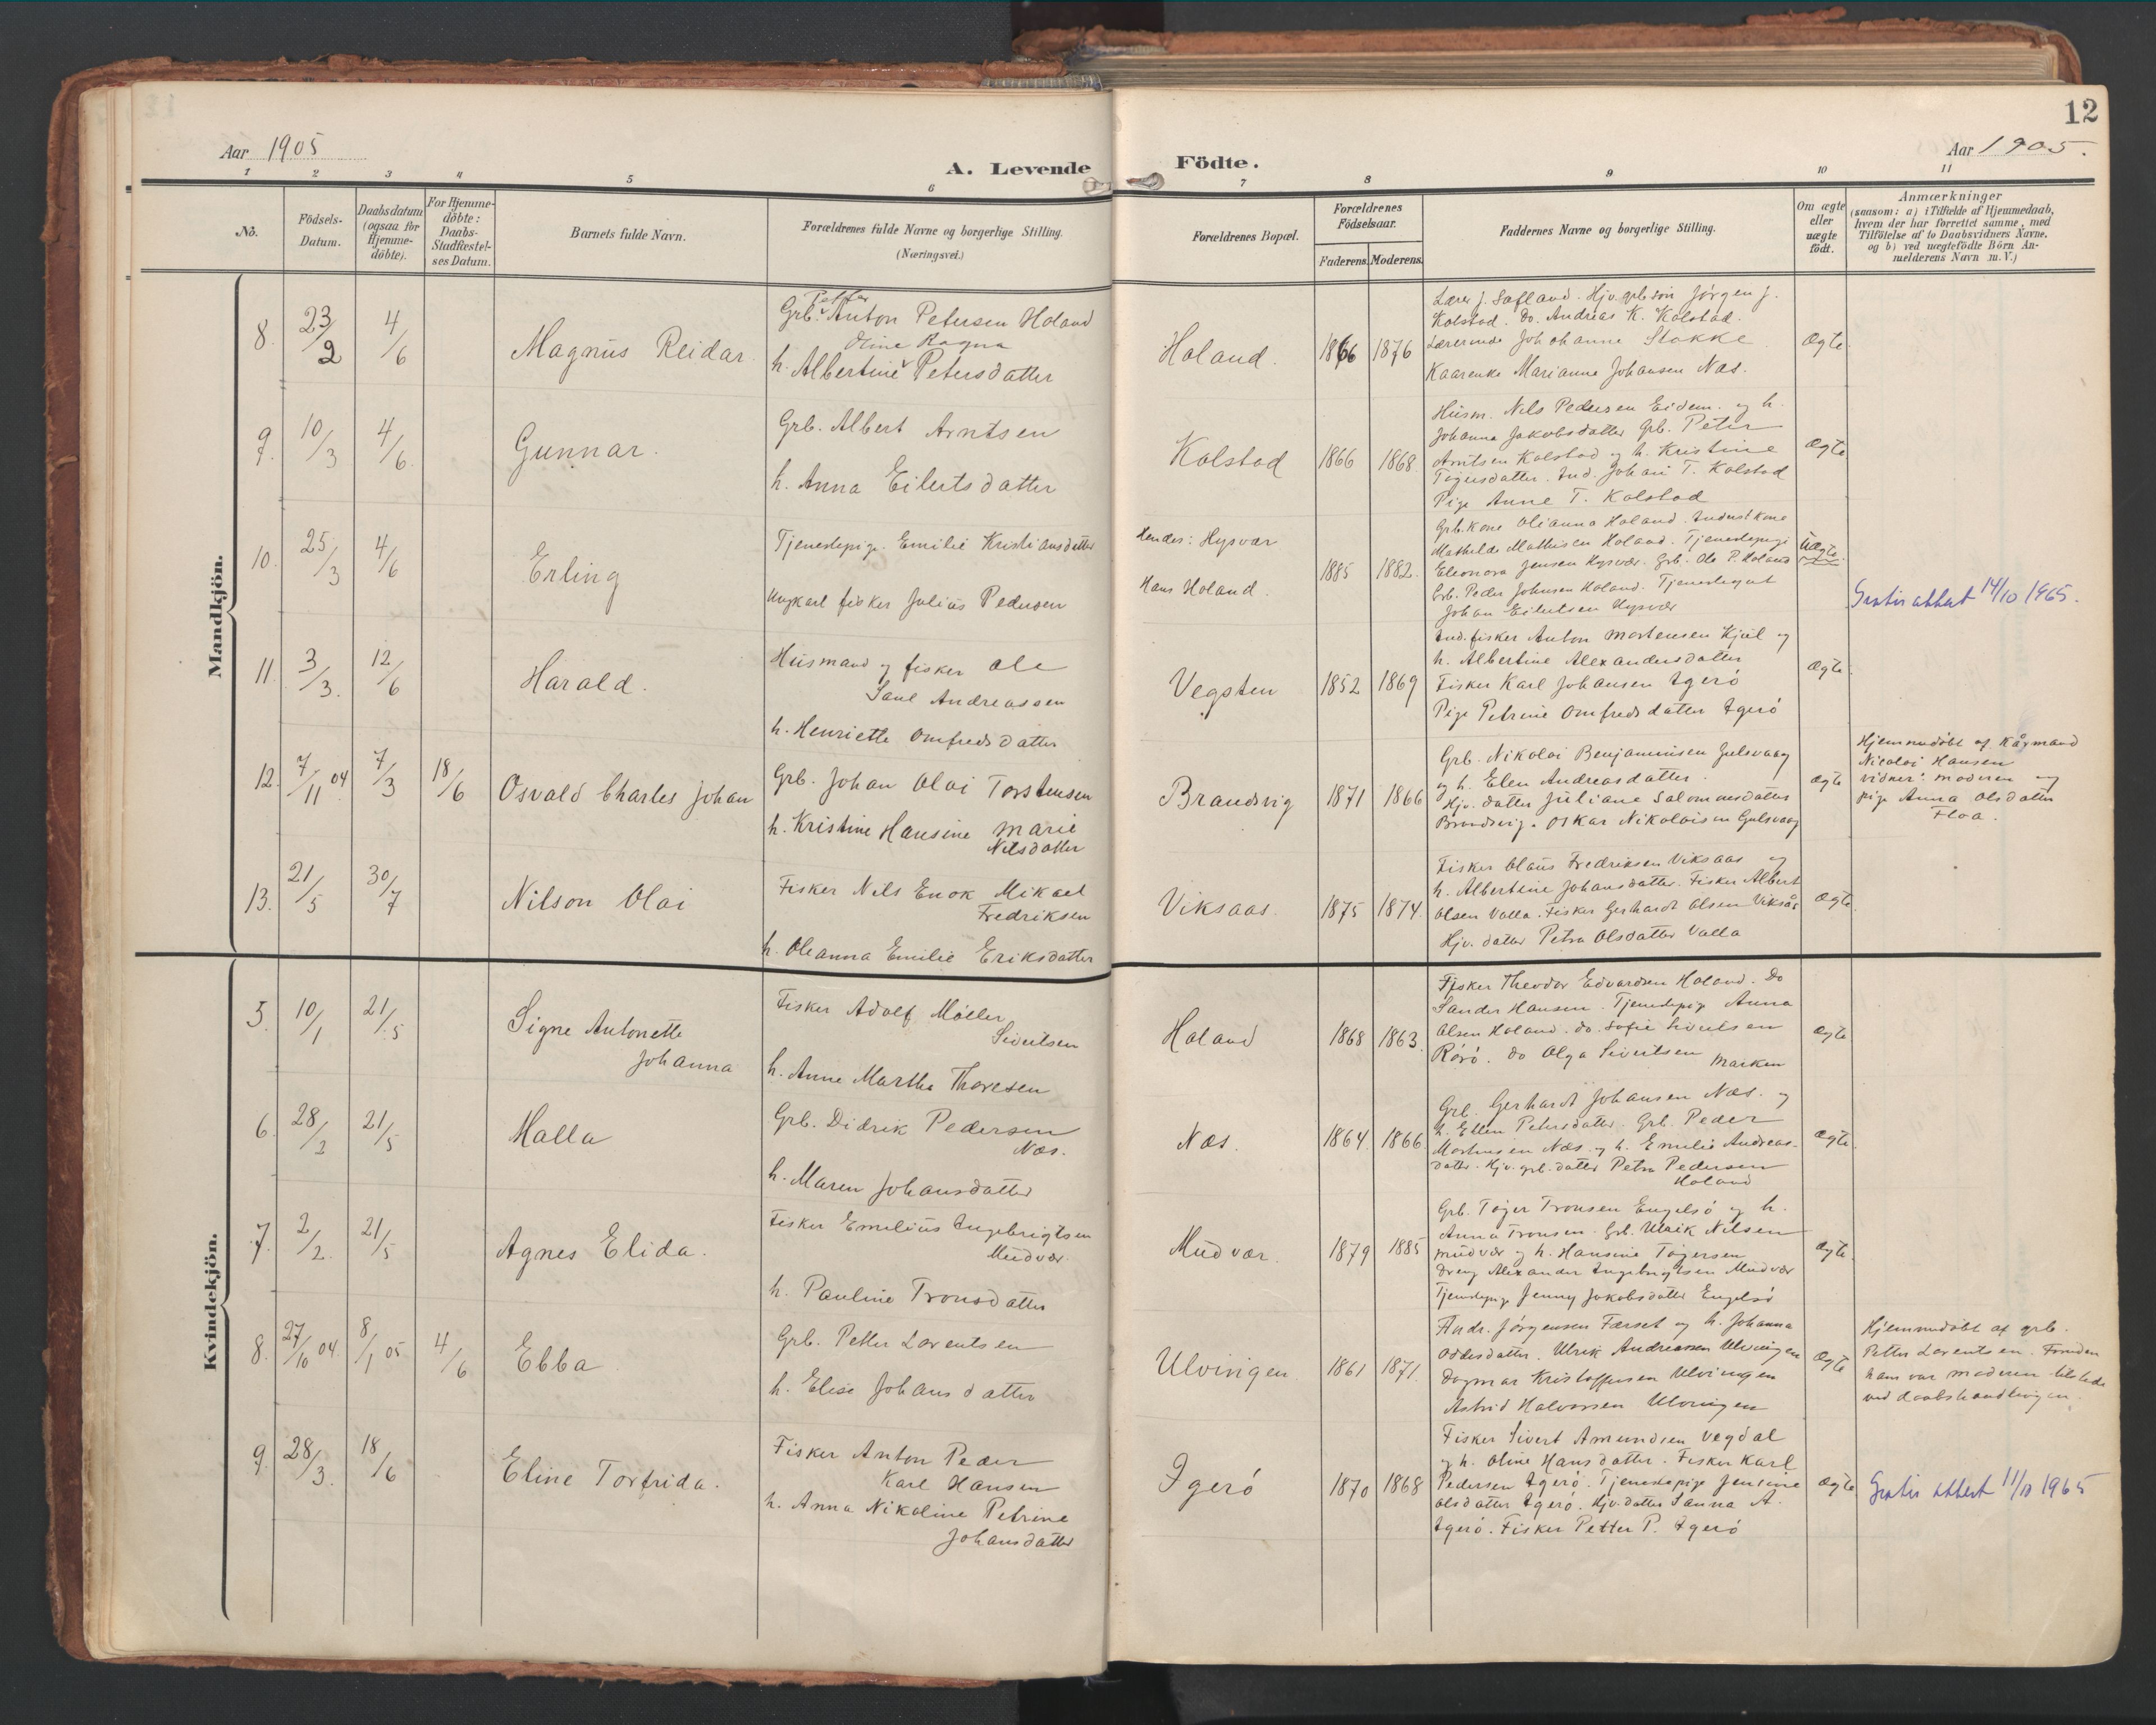 12
Aar 1905
A. Levende
Födte.
Aar 1905.
1 2 3 4 5 6 7 8 9 10 11
No.
Födsels-
Datum.
Daabsdatum
(ogsaa for
Hjemme-
döbte).
For Hjemme-
döbte:
Daabs-
Stadfæstel-
ses Datum.
Barnets fulde Navn.
Forældrenes fulde Navne og borgerlige Stilling.
(Næringsvei.)
Forældrenes Bopæl.
Forældrenes
Födselsaar.
Faderens. Moderens.
Faddernes Navne og borgerlige Stilling.
Om ægte
eller
uægte
födt.
Anmærkninger
(saasom: a) i Tilfælde af Hjemmedaab,
hvem der har forrettet samme, med
Tilföielse af to Daabsvidners Navne,
og b) ved uægtefödte Börn An-
melderens Navn m. V.)
Mandkjön.
8. 23/2 4/6
Magnus Reidar
Petter
Grb. Anton Petersen Holand
Oline Ragna
h. Albertine Petersdatter
Holand. 1866 1876
Lærer J. Safland. Hjv. grb.sön Jörgen J.
Kolstad. Do. Andreas K. Kolstad.
Lærerinde Johanne Stokke
Marianne Johansen Næs.
Ægte
9. 10/3 4/6
Gunnar.
Grb. Albert Arntsen
h. Anna Eilertsdatter
Kolstad 1866 1868.
Husm. Nils Pedersen Eidem. og h.
Johanna Jakobsdatter Grb. Peter
Arntsen Kolstad og h. Kristine
Tögersdatter. Ind. Johan T. Kolstad
Pige Anne T. Kolstad
Ægte
10. 25/3 4/6
Erling
Tjenestepige. Emilie Kristiansdatter
Ungkarl fisker Julius Pedersen
Hendes: Hysvær
Hans Holand.
1885 1882.
Grb. kone Olianna Holand. Inderst kone
Mathilde Mathisen Holand. Tjenestepige
Eleonora Jensen Hysvær. Grb. Ole P. Holand
Grb. Peder Johnsen Holand. Tjenestegut
Johan Eilertsen Hysvær
Uægte.
Gratis attest 14/10 1965.
11. 3/3. 12/6
Harald.
Husmand og fisker Ole
Saul Andreassen
h. Henriette Omfredsdatter
Vegsten 1852 1869
Ind. fisker Anton Mortensen Kjul og
h. Albertine Alexandersdatter
Fisker Karl Johansen Igerö
Pige Petrine Omfredsdatter Igerö
Ægte
12. 7/11 04 7/3 18/6
Osvald Charles Johan
Grb. Johan Olai Torstensen
h. Kristine Hansine Marie
Nilsdatter
Brandsvig 1871 1866
Grb. Nikolai Benjaminsen Gulsvaag
og h. Elen Andreasdatter.
Hjv. datter Juliane Salomonsdatter
Brandsvig. Oskar Nikolaisen Gulsvaag
Ægte
Hjemmedöbt af Kårmand
Nicolai Hansen
vidner: moderen og
pige Anna Olsdatter
Floa.
13. 21/5 30/7
Nilson Olai
Fisker Nils Enok Mikael
Fredriksen
h. Oleanna Emilie Eriksdatter
Viksaas. 1875 1874.
Fisker Olaus Fredriksen Viksaas og
h. Albertine Johansdatter. Fisker Albert
Olsen Valla. Fisker Gerhardt Olsen Viksås
Hjv. datter Petra Olsdatter Valla
Ægte.
Kvindekjön.
5. 10/1 21/5
Signe Antonette
Johanna
Fisker Adolf Möller
Sivertsen
h. Anne Martha Thoresen
Holand 1868 1863.
Fisker Theodor Edvardsen Holand. Do
Sander Hansen. Tjenestepige Anna
Olsen Holand. do. Sofie Sivertsen
Rörö. do Olga Sivertsen Marken
Ægte
6. 28/2 21/5
Halla
Grb. Didrik Pedersen
Næs.
h. Maren Johansdatter
Næs. 1864. 1866.
Grb. Gerhardt Johansen Næs. og
h. Ellen Petersdatter. Grb. Peder
Mortensen Næs og h. Emilie Andreas-
datter. Hjv. grb. datter Petra Pedersen
Holand
Ægte.
7. 2/2. 21/5
Agnes Elida.
Fisker Emelius Ingebrigtsen
Mudvær
h. Pauline Tronsdatter
Mudvær. 1879 1885
Grb. Töger Tronsen Engelsö og h.
Anna Tronsen. Grb. Ulrik Nilsen
Mudvær og h. Hansine Tögersen
Dreng Alexander Ingebrigtsen Mudvær
Tjenestepige Jenny Jakobsdatter Engelsö
Ægte.
8. 27/10 04. 8/1 05 4/6
Ebba
Grb. Petter Lorentsen
h. Elise Johansdatter
Ulvingen. 1861 1871.
Andr. Jörgensen Færset og h. Johanna
Oddesdatter. Ulrik Andreassen Ulvingen
Dagmar Kristoffersen Ulvingen
Astrid Halvorsen Ulvingen
Ægte
Hjemmedöbt af grb.
Petter Lorentsen. Foruden
ham var moderen tilstede
ved daabshandlingen.
9. 28/3. 18/6
Eline Torfrida.
Fisker Anton Peder
Karl Hansen
h. Anna Nikoline Petrine
Johansdatter
Igerö 1870 1868
Fisker Sivert Amundsen Vegdal
og h. Oline Hansdatter. Fisker Karl
Pedersen Igerö. Tjenestepige Jensine
Olsdatter Igerö. Hjv. datter Sanna A.
Igerö. Fisker Petter P. Igerö
Ægte
Gratis attest 11/10 1965